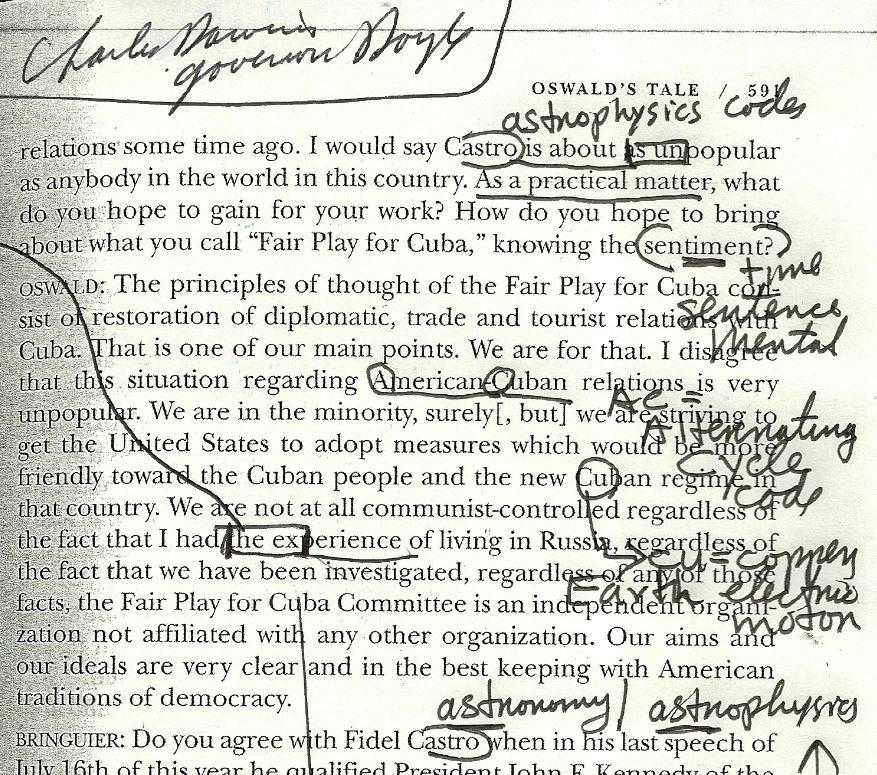 Charles Darwin
governor
OSWALD'S TALE / 591
astrophysics codes
relations some time ago. I would say Castro is about as unpopular
as anybody in the world in this country. As a practical matter, what
do you hope to gain for your work? How do you hope to bring
about what you call “Fair Play for Cuba,” knowing the sentiment?
time
OSWALD: The principles of thought of the Fair Play for Cuba con-
sentence
sist of restoration of diplomatic, trade and tourist relations with
mental
Cuba. That is one of our main points. We are for that. I disagree
that this situation regarding American-Cuban relations is very
AC =
unpopular. We are in the minority, surely[, but] we are striving to
Alternating
get the United States to adopt measures which would be more
cycle
friendly toward the Cuban people and the new Cuban regime in
code
that country. We are not at all communist-controlled regardless of
the fact that I had the experience of living in Russia, regardless of
cu = copper
the fact that we have been investigated, regardless of any of those
Earth electric
facts, the Fair Play for Cuba Committee is an independent organi-
motor
zation not affiliated with any other organization. Our aims and
our ideals are very clear and in the best keeping with American
traditions of democracy.
astronomy / astrophysics
BRINGUIER: Do you agree with Fidel Castro when in his last speech of
July 16th of this year he qualified President John F. Kennedy of the